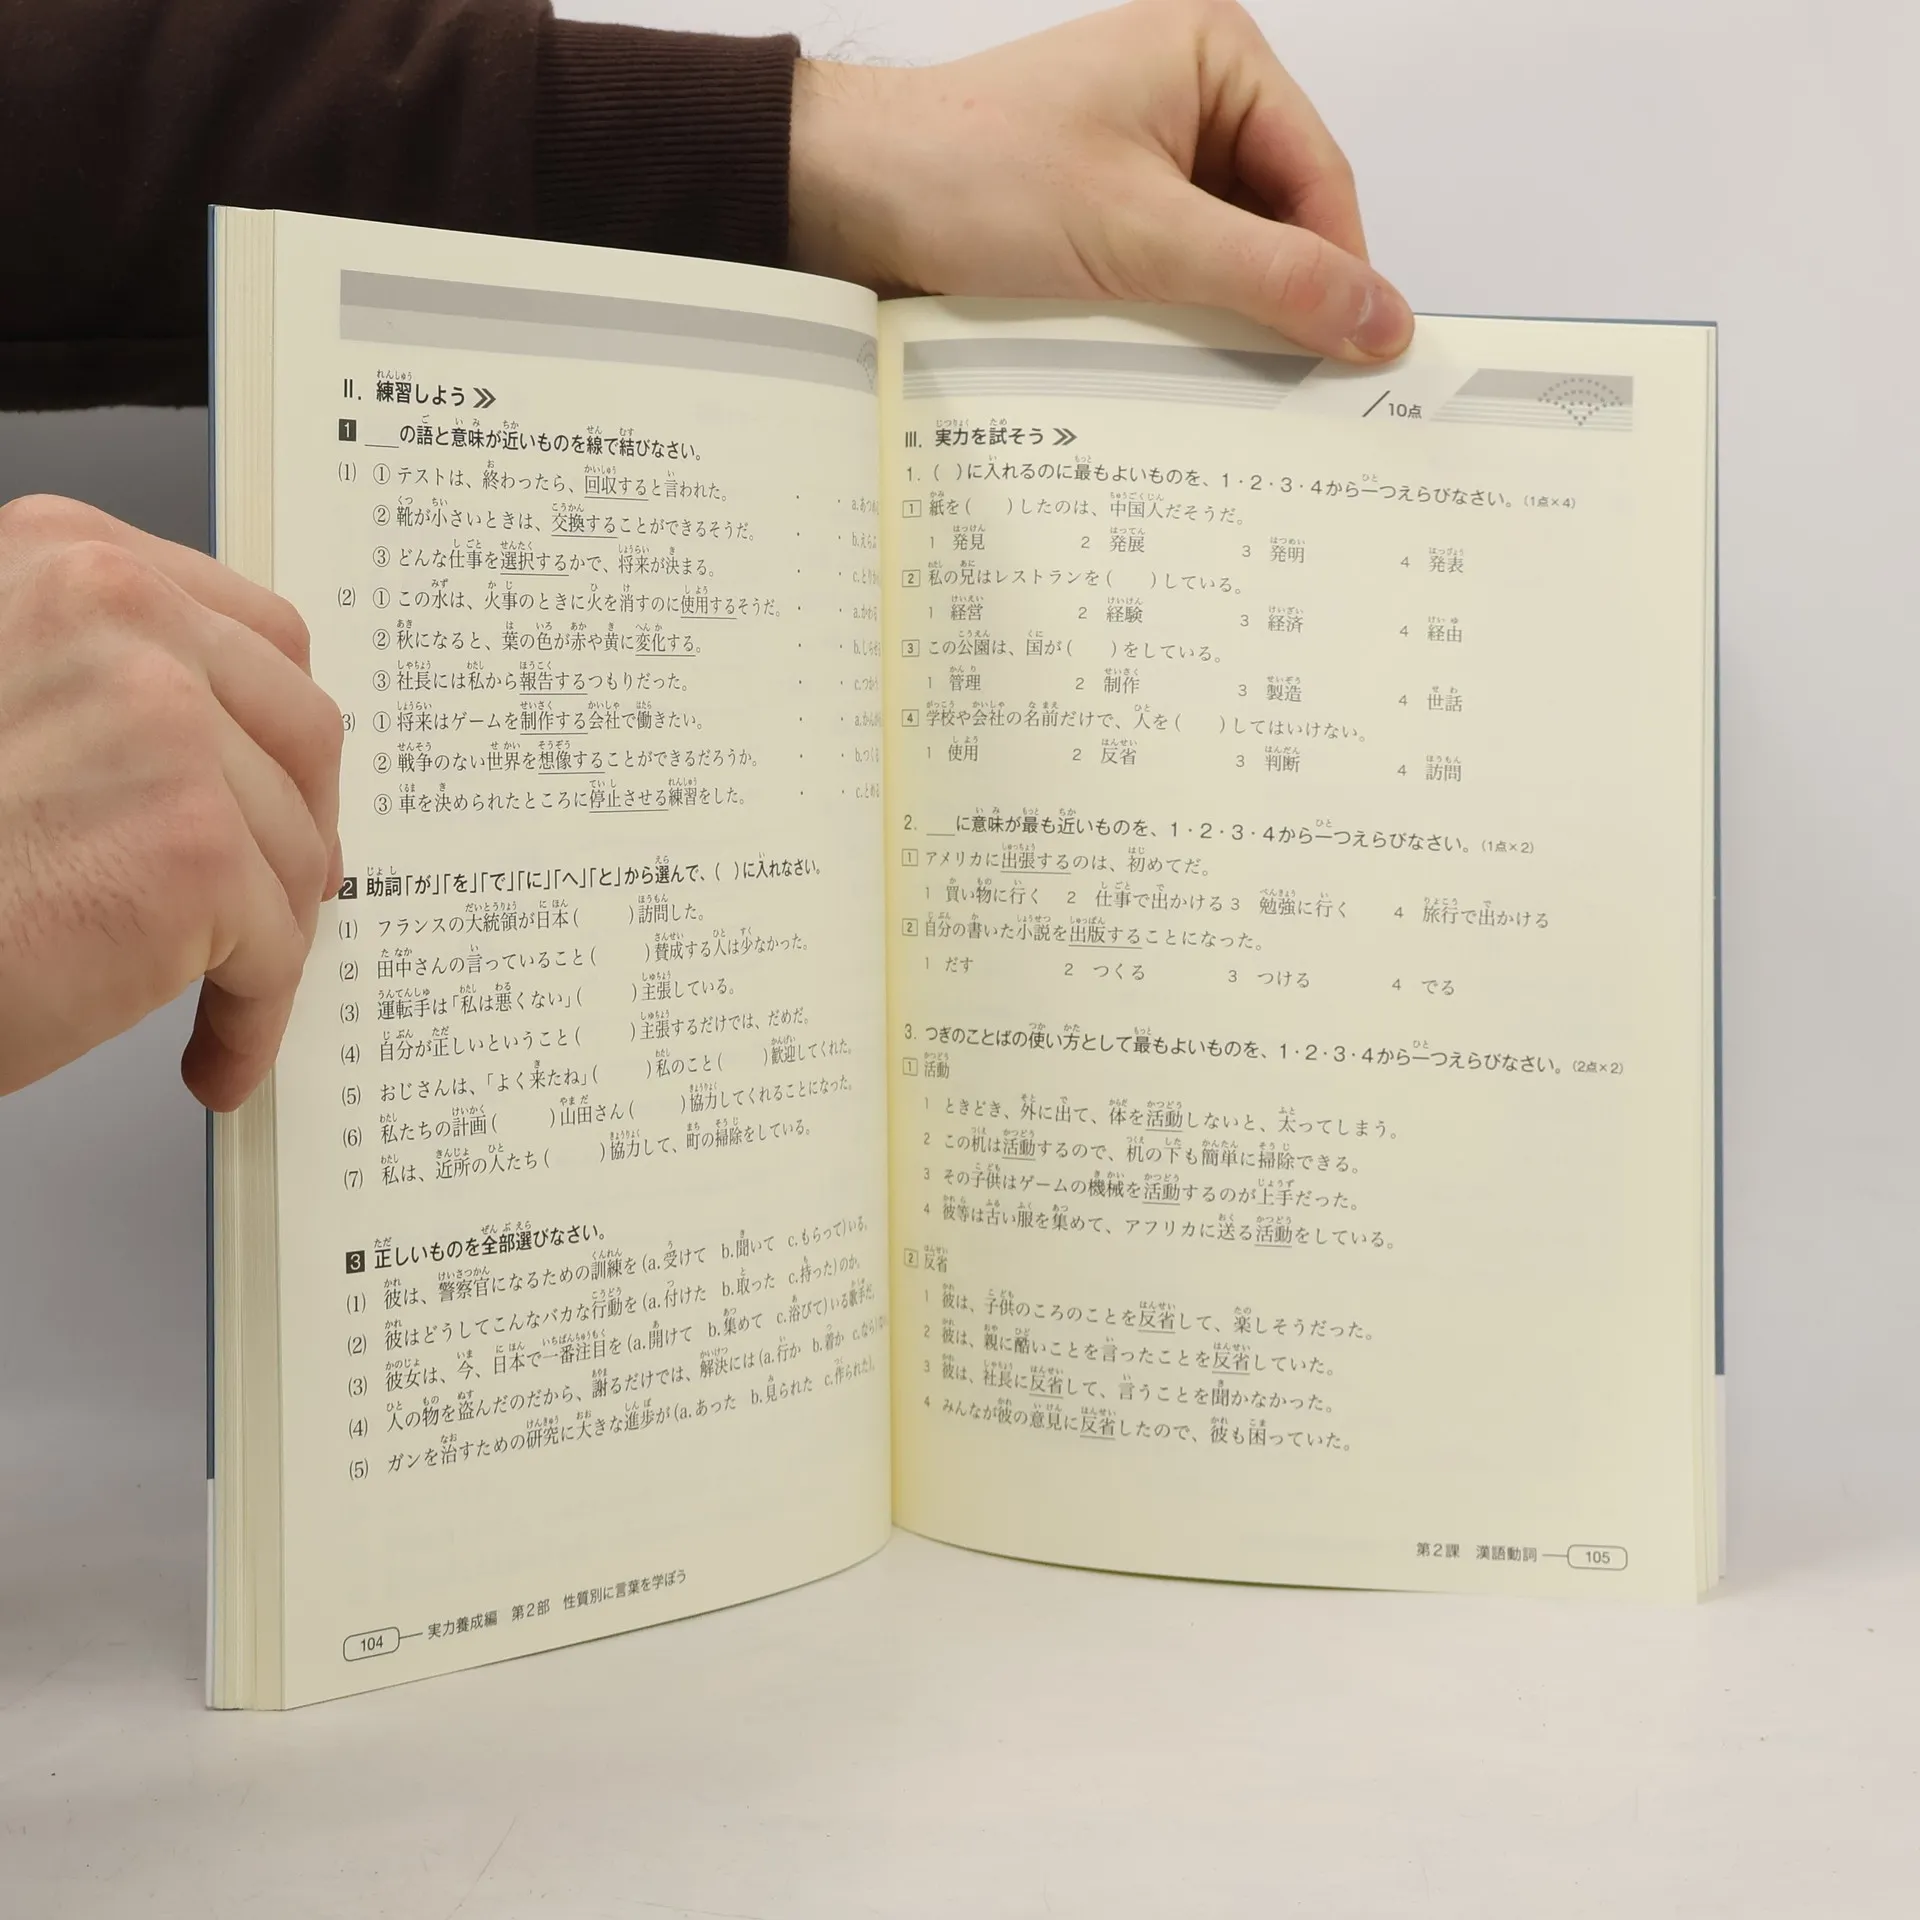 II. 練習しよう
1 ___の語と意味が近いものを線で結びなさい。
(1) ① テストは、終わったら、回収すると言われた。 ・ ・
② 靴が小さいときは、交換することができるそうだ。 ・ ・ b.えらぶ
③ どんな仕事を選択するかで、将来が決まる。 ・ ・
(2) ① この水は、火事のときに火を消すのに使用するそうだ。 ・ ・ a.かわる
② 秋になると、葉の色が赤や黄に変化する。 ・ ・
③ 社長には私から報告するつもりだった。 ・ ・ c.つかう
3) ① 将来はゲームを制作する会社で働きたい。 ・ ・
② 戦争のない世界を想像することができるだろうか。 ・ ・ b.つくる
③ 車を決められたところに停止させる練習をした。 ・ ・ c.とめる
2 助詞「が」「を」「で」「に」「へ」「と」から選んで、( )に入れなさい。
(1) フランスの大統領が日本( )訪問した。
(2) 田中さんの言っていること( )賛成する人は少なかった。
(3) 運転手は「私は悪くない」( )主張している。
(4) 自分が正しいということ( )主張するだけでは、だめだ。
(5) おじさんは、「よく来たね」( )私のこと( )歓迎してくれた。
(6) 私たちの計画( )山田さん( )協力してくれることになった。
(7) 私は、近所の人たち( )協力して、町の掃除をしている。
3 正しいものを全部選びなさい。
(1) 彼は、警察官になるための訓練を(a.受けて b.聞いて c.もらって)いる。
(2) 彼はどうしてこんなバカな行動を(a.付けた b.取った c.持った)のか。
(3) 彼女は、今、日本で一番注目を(a.開けて b.集めて c.浴びて)いる歌手だ。
(4) 人の物を盗んだのだから、謝るだけでは、解決には(a.行か b.着か c.なら)
(5) ガンを治すための研究に大きな進歩が(a.あった b.見られた c.作られた)。
104 実力養成編 第2部 性質別に言葉を学ぼう
/10点
III. 実力を試そう
1. ( )に入れるのに最もよいものを、1・2・3・4から一つえらびなさい。(1点×4)
1 紙を( )したのは、中国人だそうだ。
1 発見 2 発展 3 発明 4 発表
2 私の兄はレストランを( )している。
1 経営 2 経験 3 経済 4 経由
3 この公園は、国が( )をしている。
1 管理 2 制作 3 製造 4 世話
4 学校や会社の名前だけで、人を( )してはいけない。
1 使用 2 反省 3 判断 4 訪問
2. ___に意味が最も近いものを、1・2・3・4から一つえらびなさい。(1点×2)
1 アメリカに出張するのは、初めてだ。
1 買い物に行く 2 仕事で出かける 3 勉強に行く 4 旅行で出かける
2 自分の書いた小説を出版することになった。
1 だす 2 つくる 3 つける 4 でる
3. つぎのことばの使い方として最もよいものを、1・2・3・4から一つえらびなさい。(2点×2)
1 活動
1 ときどき、外に出て、体を活動しないと、太ってしまう。
2 この机は活動するので、机の下も簡単に掃除できる。
3 その子供はゲームの機械を活動するのが上手だった。
4 彼等は古い服を集めて、アフリカに送る活動をしている。
2 反省
1 彼は、子供のころのことを反省して、楽しそうだった。
2 彼は、親に酷いことを言ったことを反省していた。
3 彼は、社長に反省して、言うことを聞かなかった。
4 みんなが彼の意見に反省したので、彼も困っていた。
第2課 漢語動詞 105